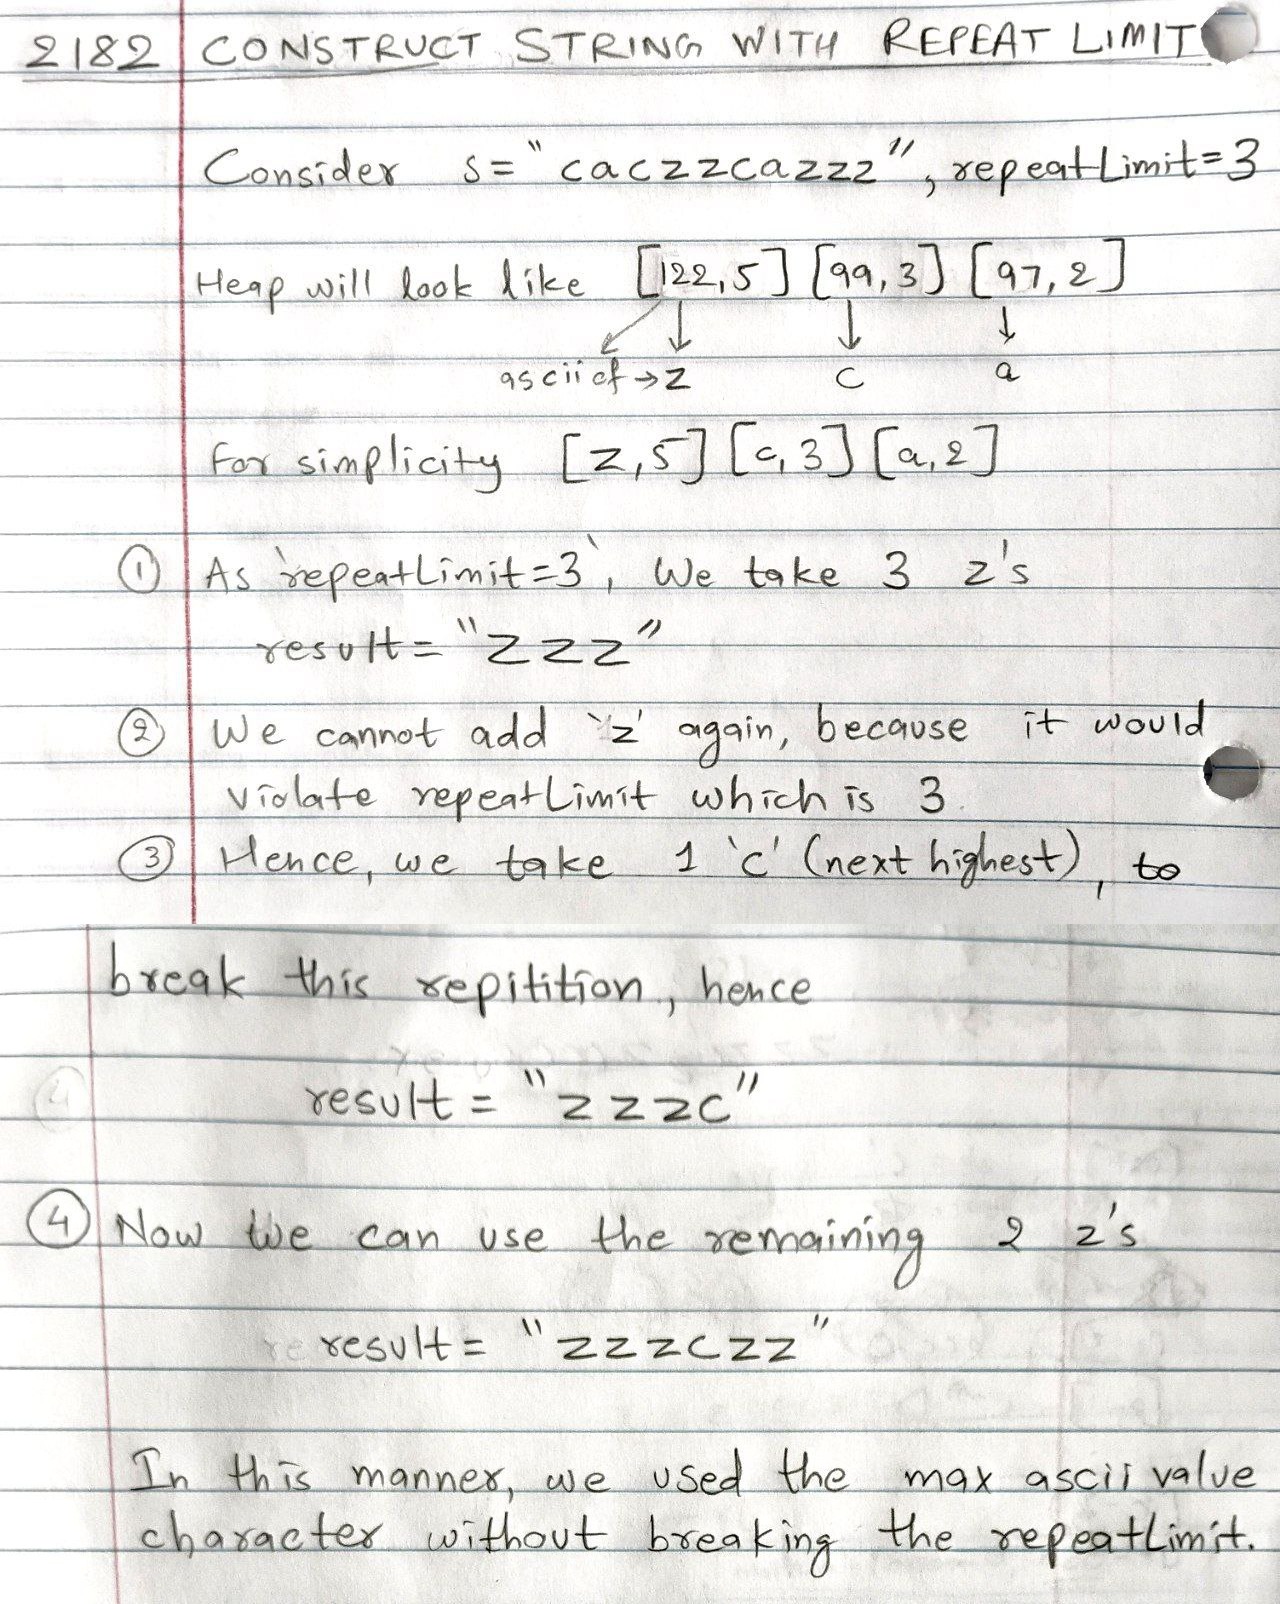 2182 CONSTRUCT STRING WITH REPEAT LIMIT
Consider s = "caczzcazzz", repeatLimit=3
Heap will look like [122,5] [99,3] [97,2]
ascii of → z c a
For simplicity [z,5] [c,3] [a,2]
① As `repeatLimit=3`, We take 3 z's
result = "zzz"
② We cannot add `z' again, because it would
violate repeatLimit which is 3.
③ Hence, we take 1 'c' (next highest), to
break this repitition, hence
result = "zzzc"
④ Now we can use the remaining 2 z's
result = "zzzczz"
In this manner, we used the max ascii value
character without breaking the repeatLimit.